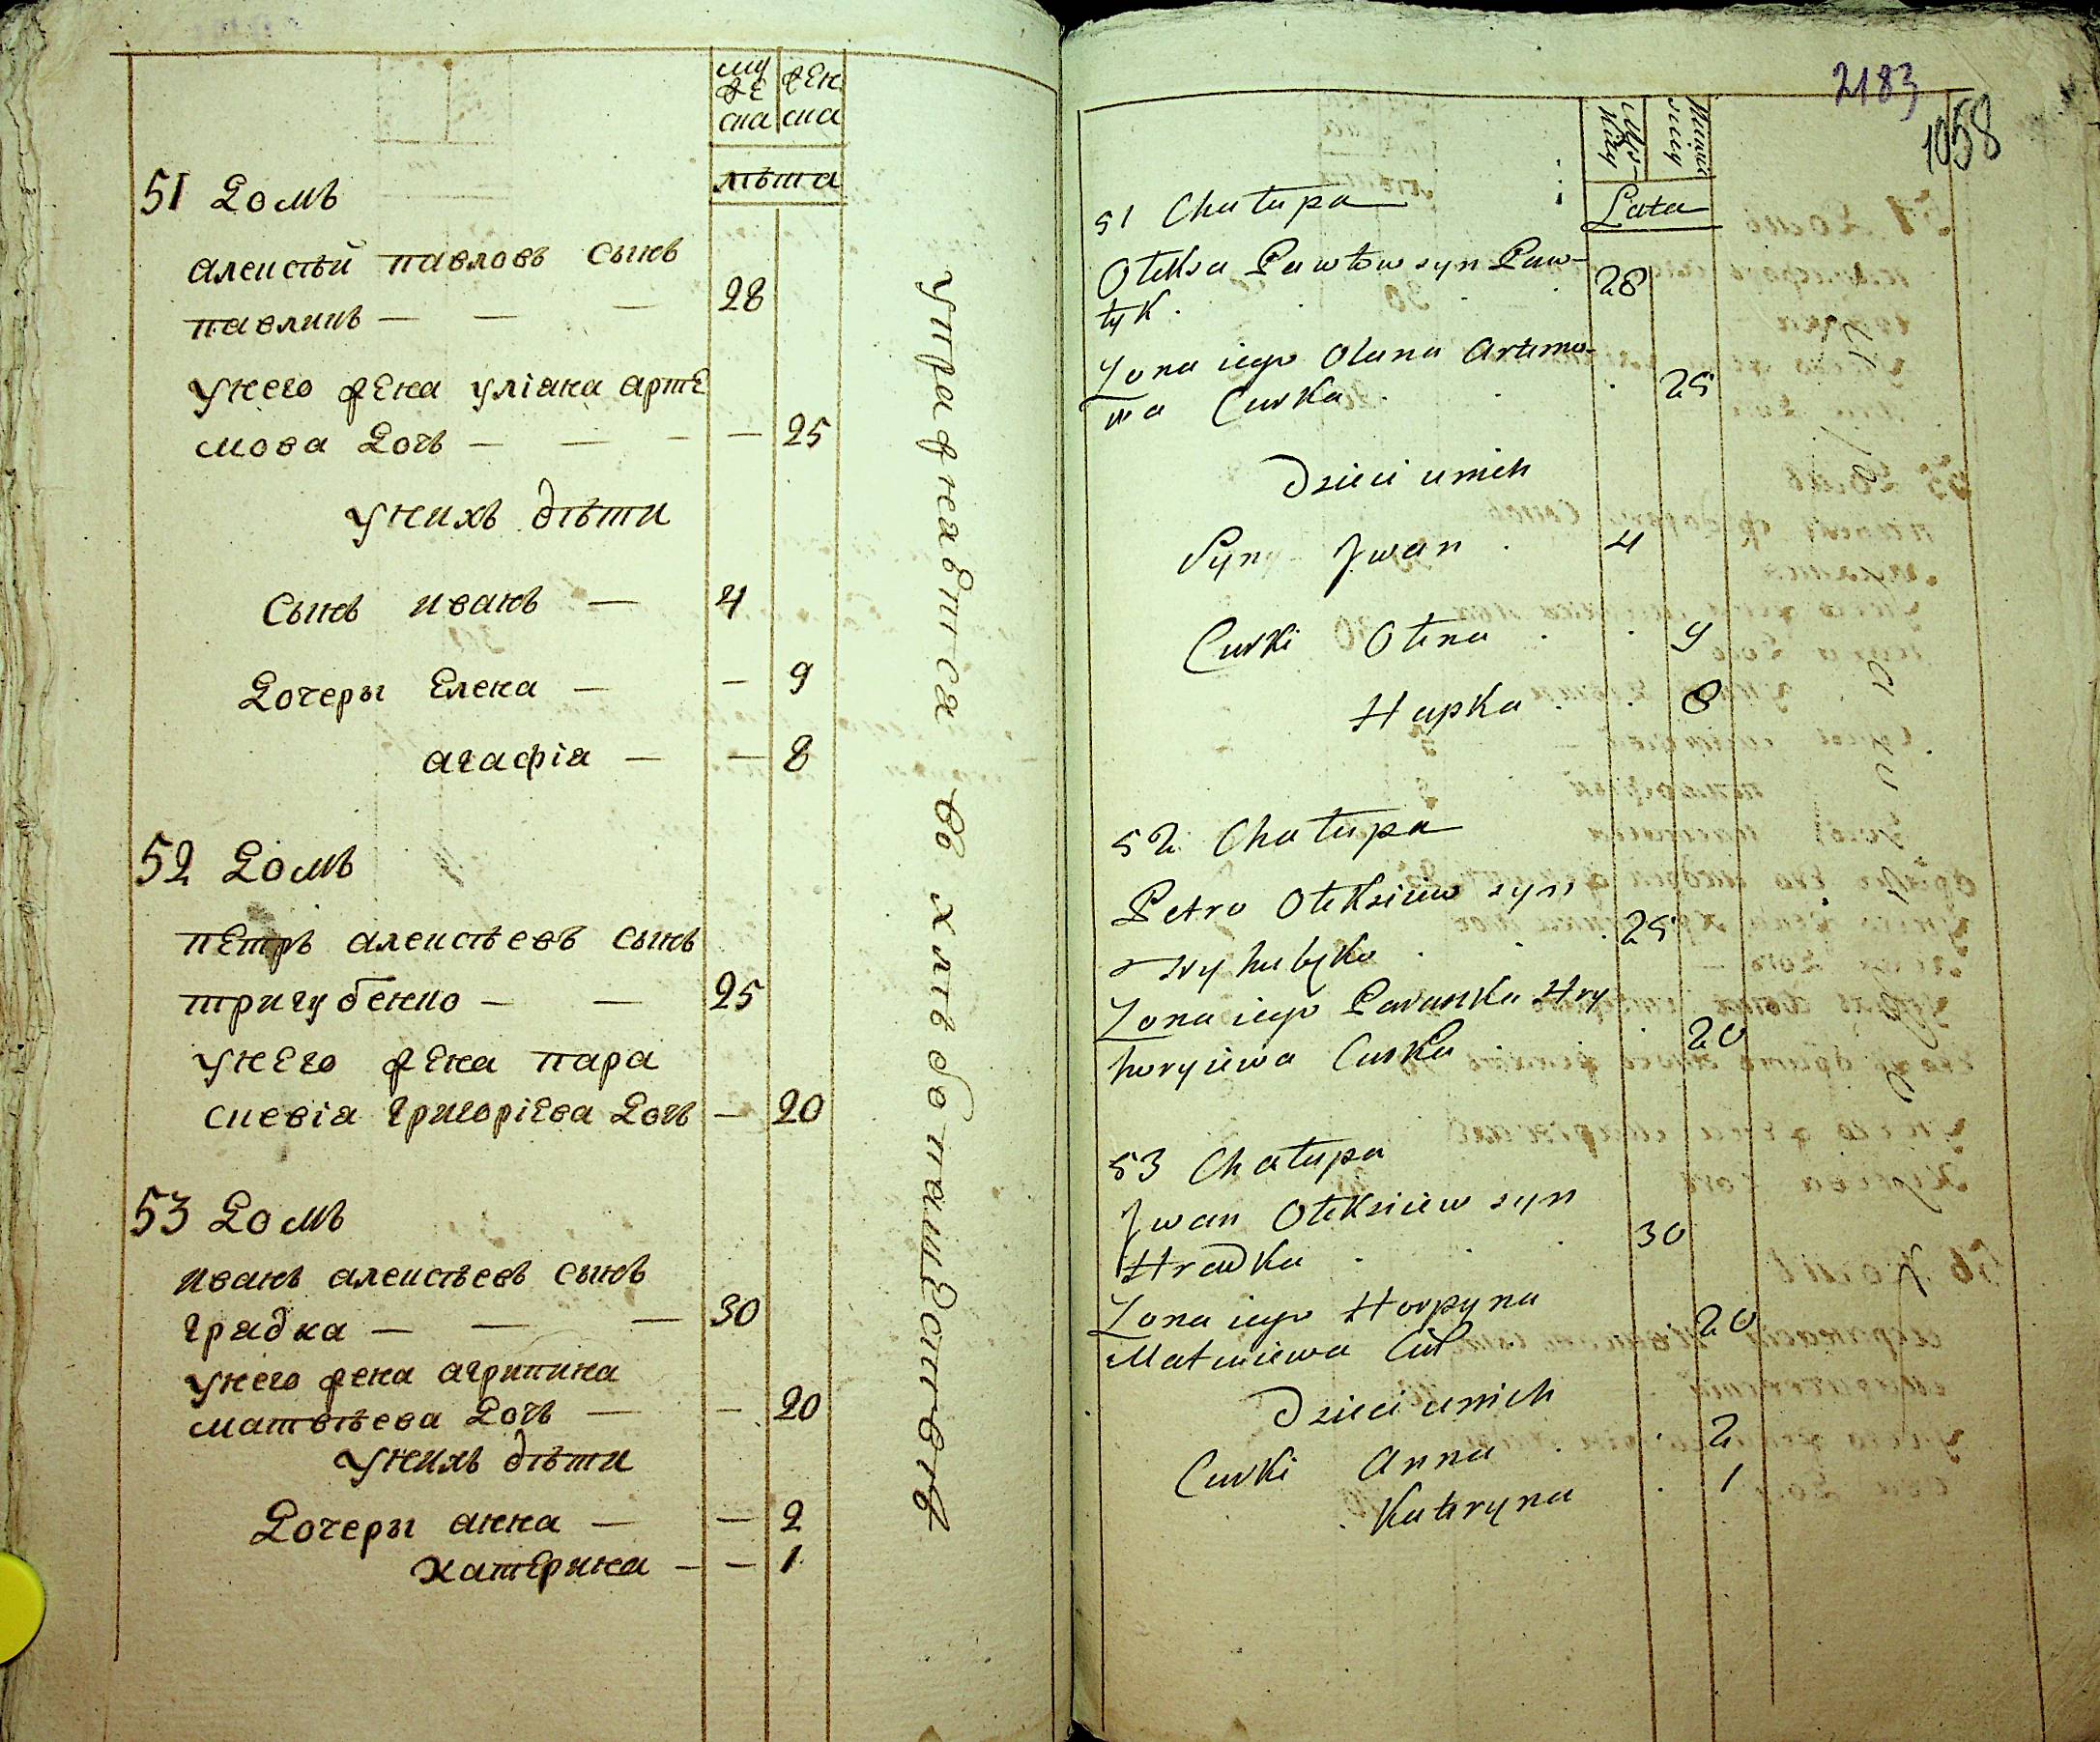 муже ска
женска
лѣта
51 Домъ
алексѣй павловъ сынъ
павликъ — — — 28
унего жена уліана арте
мова Дочъ — — — — 25
унихъ дѣти
сынъ иванъ — 4
Дочеры Елена — — 9
агафія — — 8
52 Домъ
пЕтръ алексѣевъ сынъ
тригубенко — — 25
унЕго жЕна пара
скевія григоріЕва Дочъ — 20
53 Домъ
иванъ алексѣевъ сынъ
градка — — — 30
унего жена агрипина
матвѣева Дочъ — — 20
унихъ дѣти
Дочеры анна — — 2
катЕрина — — 1
упражнаЕтся въ хлѣбопашЕствѣ
2183
1058
Lata
51 Chałupa
Ołeksa Pawłow syn Paw-
łyk . 28
Żona iego Olana Artemo-
wa Curka . 25
Dzieci unich
Syn Jwan . 4
Curki Ołena . . 9
Hapka . . 8
52 Chałupa
Petro Ołeksiiew syn
Tryhubyko . . 25
Żona iego Paraska Hry
horyiewa Curka . . 20
53 Chałupa
Jwan Ołeksiiew syn
Hradka . . 30
Żona iego Horpyna
Matwiiewa Cur 20
Dzieci unich
Curki Anna . . 2
Kateryna . 1